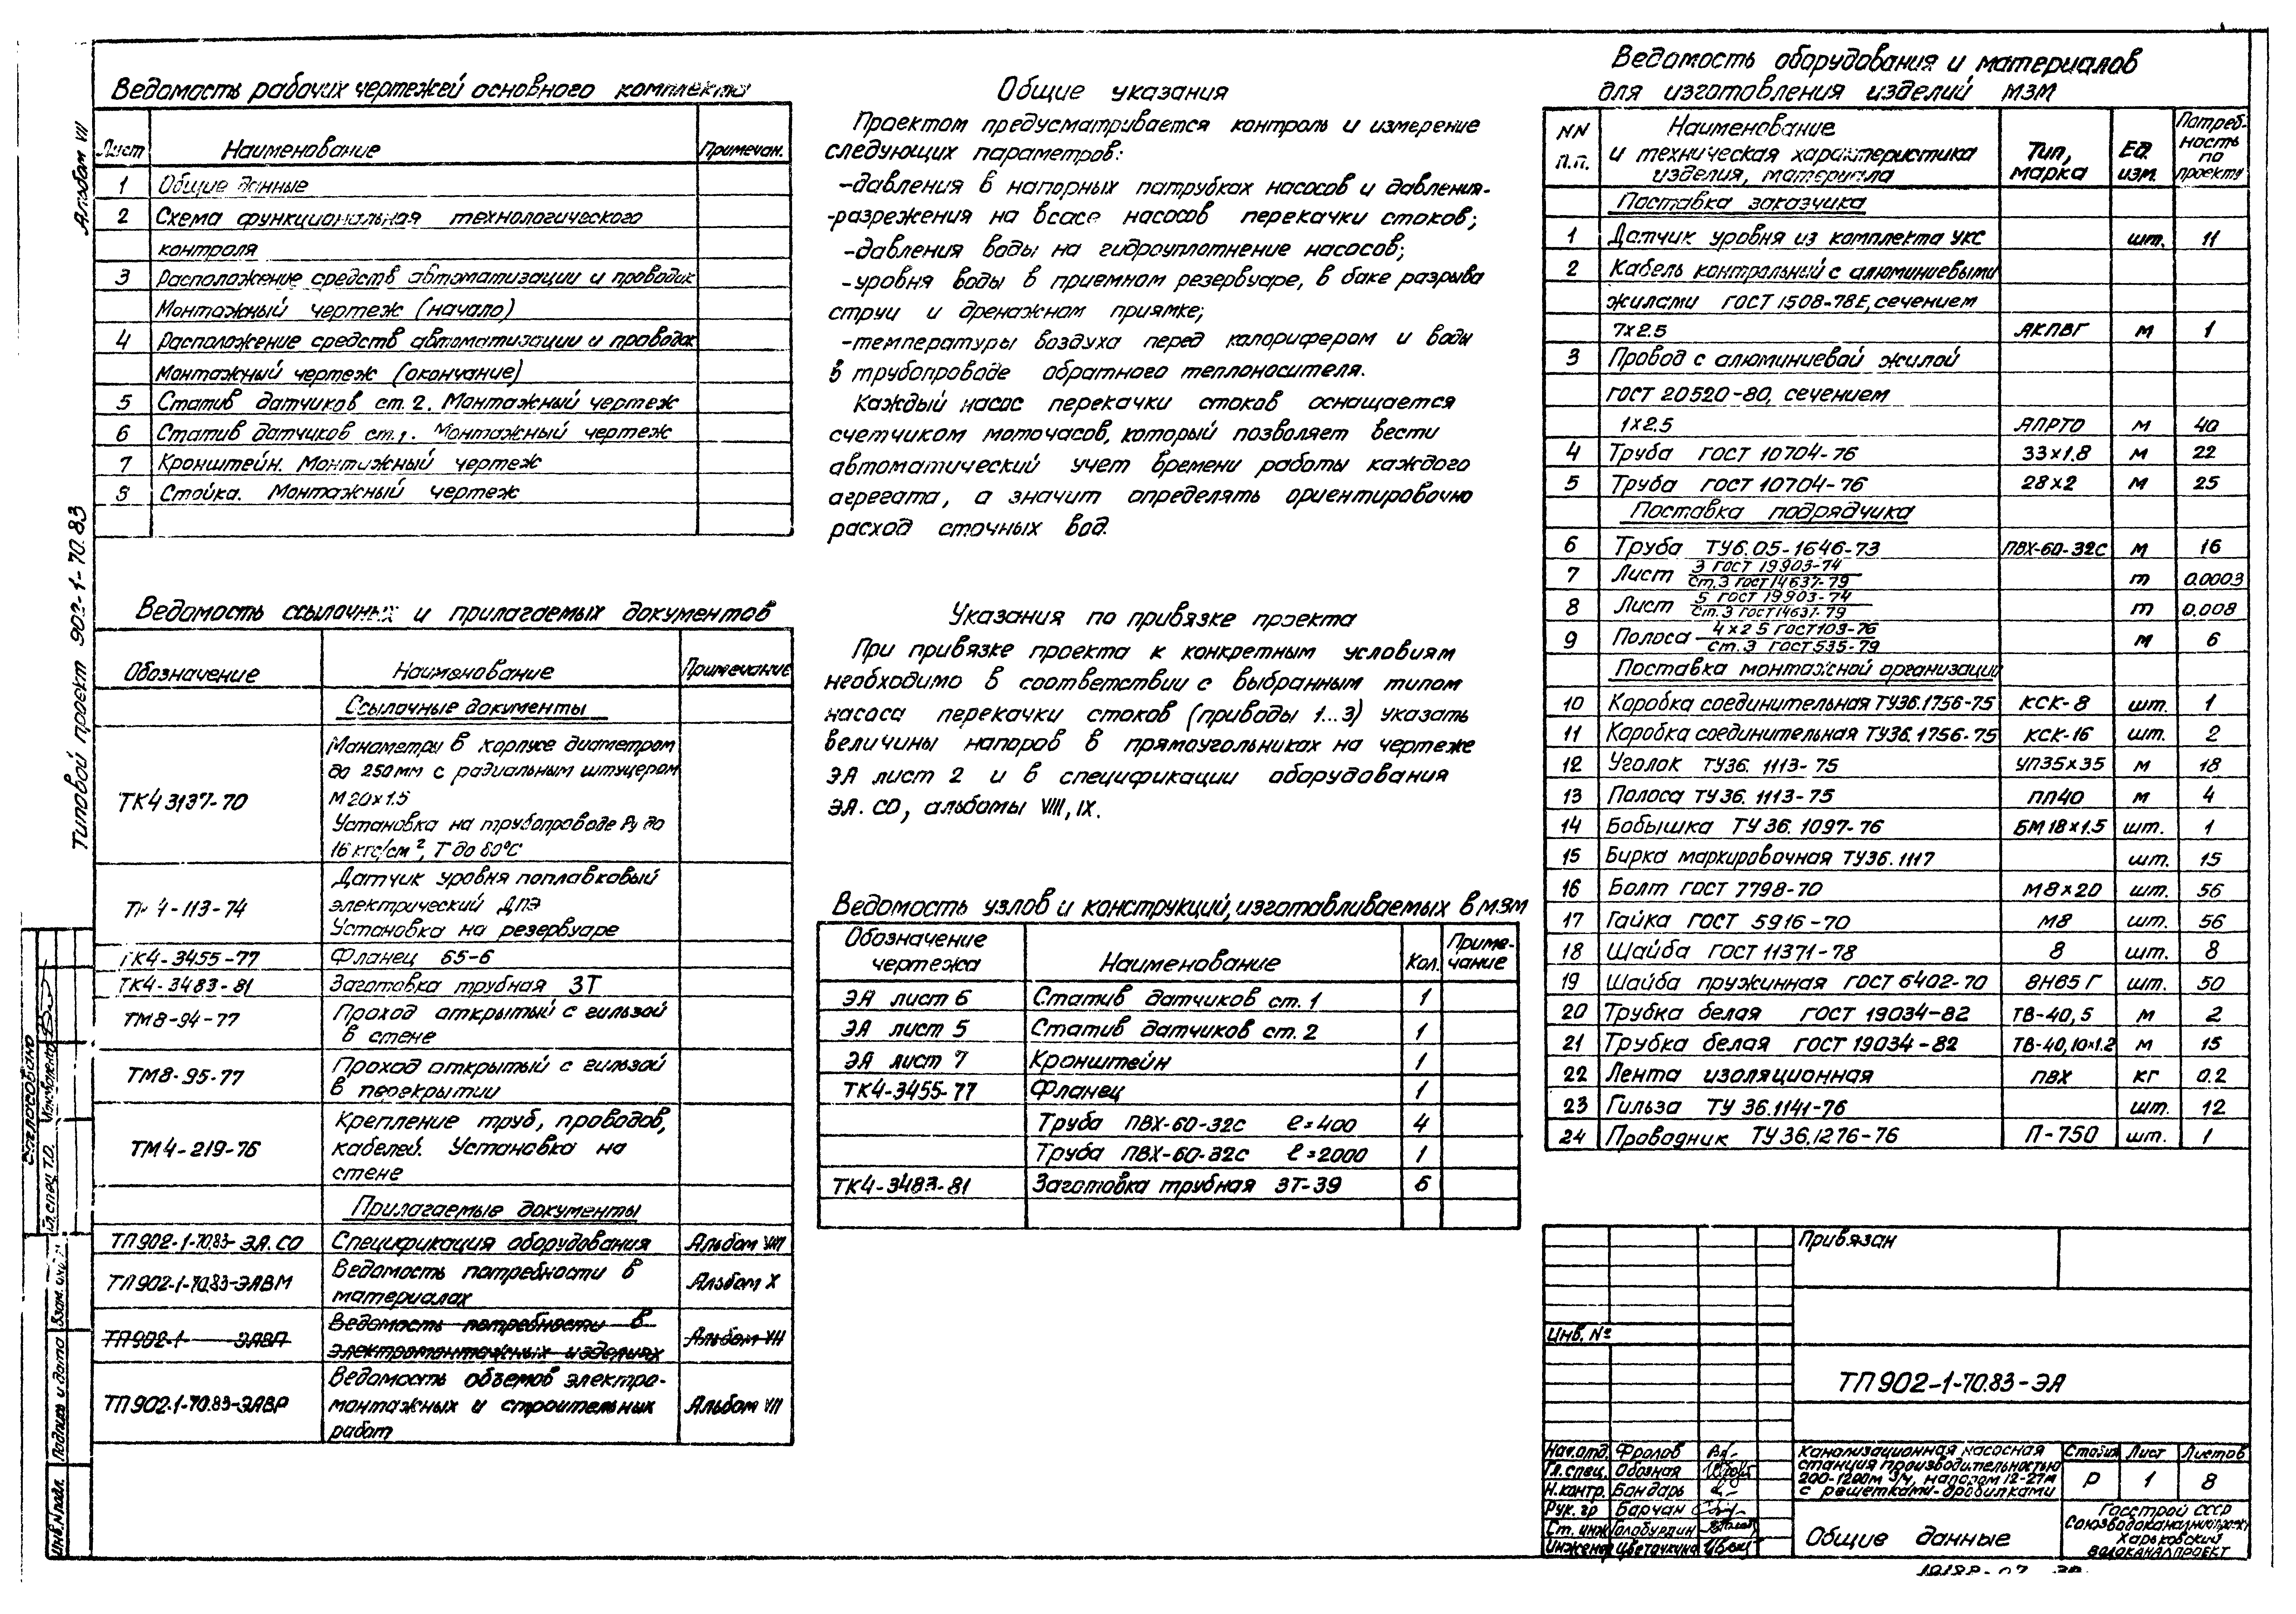 Альбом VII
Типовой проект 902-1-70.83
Ведомость рабочих чертежей основного комплекта
Лист Наименование Примечан.
1 Общие данные
2 Схема функциональная технологического
контроля
3 Расположение средств автоматизации и проводок
Монтажный чертеж (начало)
4 Расположение средств автоматизации и проводок
Монтажный чертеж (окончание)
5 Статив датчиков ст.2. Монтажный чертеж
6 Статив датчиков ст.1. Монтажный чертеж
7 Кронштейн. Монтажный чертеж
8 Стойка. Монтажный чертеж
Ведомость ссылочных и прилагаемых документов
Обозначение Наименование Примечание
Ссылочные документы
ТК4 3137-70 Манометры в корпусе диаметром
до 250мм с радиальным штуцером
М20х1.5
Установка на трубопроводе Ру до
16 кгс/см², Т до 80°С
4-113-74 Датчик уровня поплавковый
электрический ДПЭ
Установка на резервуаре
ТК4-3455-77 Фланец 65-6
ТК4-3483-81 Заготовка трубная ЗТ
ТМ8-94-77 Проход открытый с гильзой
в стене
ТМ8-95-77 Проход открытый с гильзой
в перекрытии
ТМ4-219-76 Крепление труб, проводов,
кабелей. Установка на
стене
Прилагаемые документы
ТП902-1-70.83-ЭА.СО Спецификация оборудования Альбом VIII
ТП902-1-70.83-ЭАВМ Ведомость потребности в
материалах Альбом X
ТП902-1 ЭАВП Ведомость потребности в
электромонтажных изделиях Альбом VII
ТП902.1-70.83-ЭАВР Ведомость объемов электро-
монтажных и строительных
работ Альбом VII
Общие указания
Проектом предусматривается контроль и измерение
следующих параметров:
-давления в напорных патрубках насосов и давления-
-разрежения на всасе насосов перекачки стоков;
-давления воды на гидроуплотнение насосов;
-уровня воды в приемном резервуаре, в баке разрыва
струи и дренажном приямке;
-температуры воздуха перед калорифером и воды
в трубопроводе обратного теплоносителя.
Каждый насос перекачки стоков оснащается
счетчиком моточасов, который позволяет вести
автоматический учет времени работы каждого
агрегата, а значит определять ориентировочно
расход сточных вод.
Указания по привязке проекта
При привязке проекта к конкретным условиям
необходимо в соответствии с выбранным типом
насоса перекачки стоков (приводы 1...3) указать
величины напоров в прямоугольниках на чертеже
ЭА лист 2 и в спецификации оборудования
ЭА.СО, альбомы VIII, IX.
Ведомость узлов и конструкций, изготавливаемых в МЗМ
Обозначение чертежа Наименование Кол. Приме-чание
ЭА лист 6 Статив датчиков ст.1 1
ЭА лист 5 Статив датчиков ст.2 1
ЭА лист 7 Кронштейн 1
ТК4-3455-77 Фланец 1
Труба ПВХ-60-32с ℓ=400 4
Труба ПВХ-60-32с ℓ=2000 1
ТК4-3483-81 Заготовка трубная ЗТ-39 6
Ведомость оборудования и материалов
для изготовления изделий МЗМ
NN п.п. Наименование и техническая характеристика изделия, материала Тип, марка Ед. изм. Потреб-ность по проекту
Поставка заказчика
1 Датчик уровня из комплекта УКС шт. 11
2 Кабель контрольный с алюминиевыми
жилами ГОСТ 1508-78Е, сечением
7х2.5 АКПВГ м 1
3 Провод с алюминиевой жилой
ГОСТ 20520-80, сечением
1х2.5 АПРТО м 40
4 Труба ГОСТ 10704-76 33х1.8 м 22
5 Труба ГОСТ 10704-76 28х2 м 25
Поставка подрядчика
6 Труба ТУ6.05-1646-73 ПВХ-60-32С м 16
7 Лист 3 ГОСТ 19903-74 / Ст.3 ГОСТ 14637-79 т 0.0003
8 Лист 5 ГОСТ 19903-74 / Ст.3 ГОСТ 14637-79 т 0.008
9 Полоса 4х25 ГОСТ 103-76 / Ст.3 ГОСТ 535-79 м 6
Поставка монтажной организации
10 Коробка соединительная ТУ36.1756-75 КСК-8 шт. 1
11 Коробка соединительная ТУ36.1756-75 КСК-16 шт. 2
12 Уголок ТУ36. 1113-75 УП35х35 м 18
13 Полоса ТУ36. 1113-75 ПП40 м 4
14 Бобышка ТУ36. 1097-76 БМ18х1.5 шт. 1
15 Бирка маркировочная ТУ36.1117 шт. 15
16 Болт ГОСТ 7798-70 М8х20 шт. 56
17 Гайка ГОСТ 5916-70 М8 шт. 56
18 Шайба ГОСТ 11371-78 8 шт. 8
19 Шайба пружинная ГОСТ 6402-70 8Н65Г шт. 50
20 Трубка белая ГОСТ 19034-82 ТВ-40,5 м 2
21 Трубка белая ГОСТ 19034-82 ТВ-40,10х1.2 м 15
22 Лента изоляционная ПВХ кг 0.2
23 Гильза ТУ 36.1141-76 шт. 12
24 Проводник ТУ36.1276-76 П-750 шт. 1
Привязан
Инв. №
ТП902-1-70.83-ЭА
Нач.отд. Фролов
Гл.спец. Обозная
Н.контр. Бондарь
Рук.гр Барчан
Ст. инж Голобурдин
Инженер Цветочкина
Канализационная насосная
станция производительностью
200-1200м³/ч, напором 12-27м
с решетками-дробилками
Стадия Лист Листов
Р 1 8
Общие данные
Госстрой СССР
Союзводоканалниипроект
Харьковский
ВОДОКАНАЛПРОЕКТ
Согласовано
Гл.спец Т.О.
Взам. инв.
Подпись и дата
Инв.№ подл.